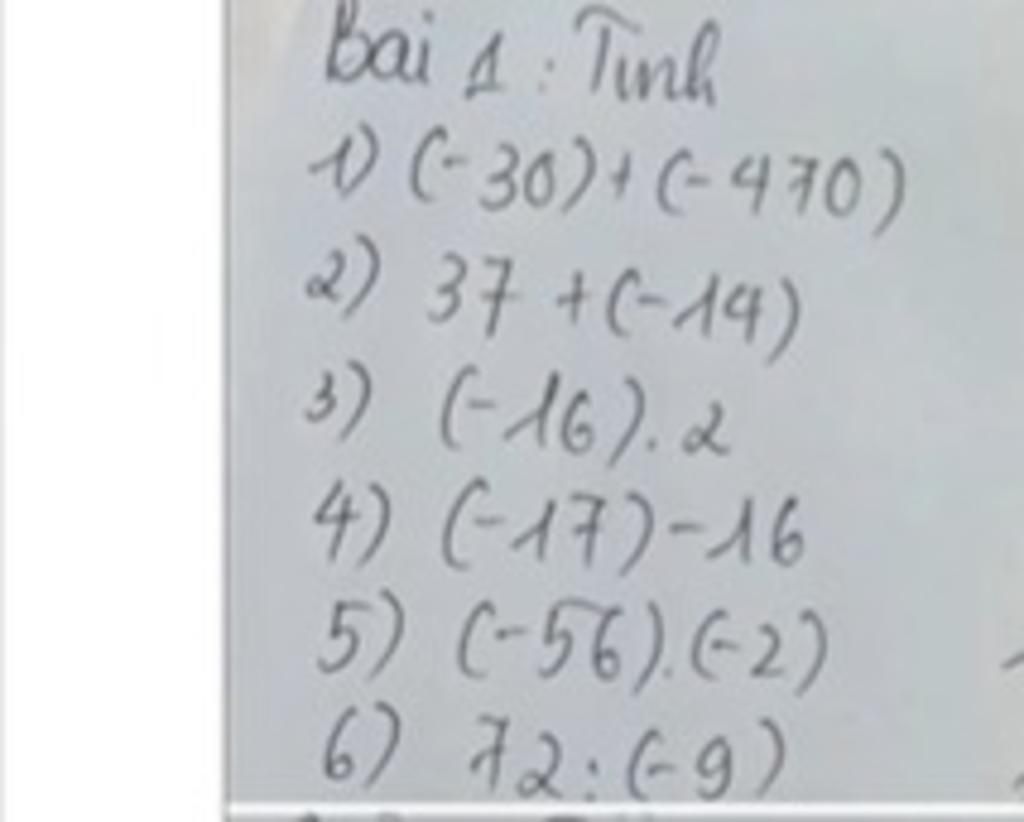 Bài 1: Tính
1) (-30)+(-470)
2) 37 +(-14)
3) (-16). 2
4) (-17)-16
5) (-56).(-2)
6) 72:(-9)